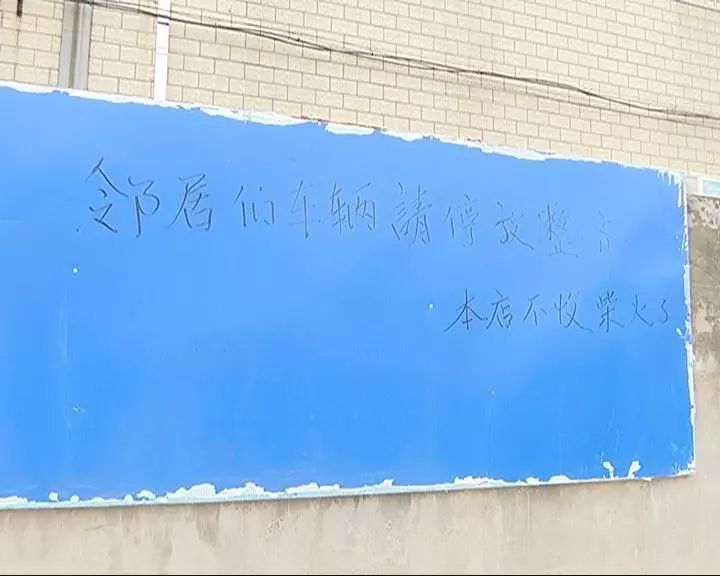 邻居们车辆請停放整齐
本店不收柴火了